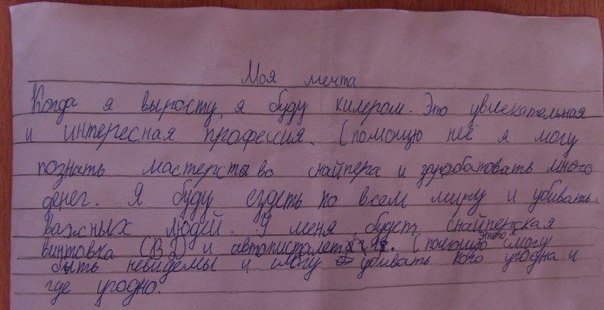 Моя мечта
Когда я выросту, я буду килером. Это увлекательная
и интересная профессия. С помощю неё я могу
познать мастерство снайпера и зарабатовать много
денег. Я буду ездеть по всем миру и убивать
важных людей. У меня будет снайперская
винтовка и автопистолет. С помощию этого смогу
быть невидемы и смогу убивать кого угодна и
где угодно.